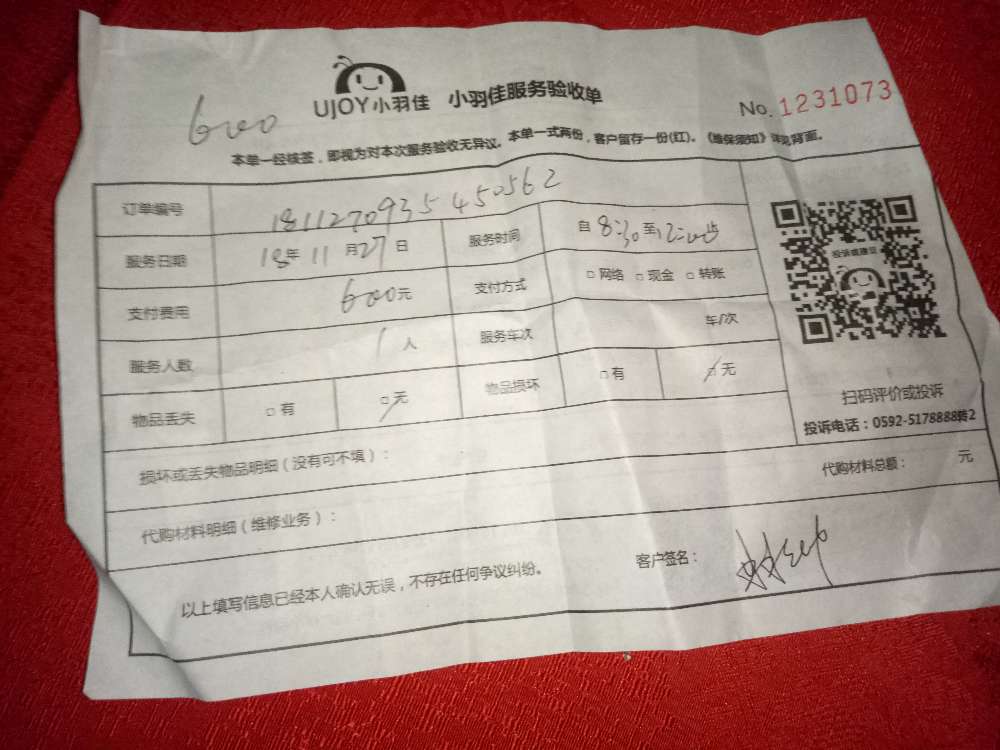 600
UJOY小羽佳 小羽佳服务验收单
No. 1231073
本单一经核签，即视为对本次服务验收无异议。本单一式两份，客户留存一份(红)。《维保须知》详见背面。
订单编号 1811270935450562
服务日期 18年11月27日 服务时间 自8:30至12:00
投诉或建议
支付费用 600元 支付方式 □网络 □现金 □转账
服务人数 1人 服务车次 车/次
物品丢失 □有 □无 物品损坏 □有 □无
扫码评价或投诉
投诉电话：0592-5178888转2
损坏或丢失物品明细（没有可不填）：
代购材料总额： 元
代购材料明细（维修业务）：
客户签名：
以上填写信息已经本人确认无误，不存在任何争议纠纷。